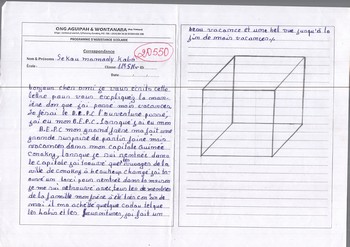 ONG AGUIPAH & WONTANARA
PROGRAMME D'ASSISTANCE SCOLAIRE
Correspondance
20550
Nom & Prénoms : Sekou mamady Kaba
Ecole : Classe :
Date :
Bonjour cher ami je vous écrits cette
lettre pour vous expliquez la man-
ière don que j'ai passé mon vacances.
Je ferai le B.E.P.C l'ouverture passé,
j'ai eu mon B.E.P.C, Lorsque j'ai eu mon
B.E.P.C mon grand frère ma fait une
grande surprise de partir faire mon
vacances dans mon capitale Guinée
Conakry, Lorsque je sui rentrée dans
le Capitale j'ai trouvé que images de la
ville de conakry a beaucoup changé, j'ai tr-
ouvé un taxi pour rentré dans la maison
je me sui retrouvé avec tous les membres
de la famille mon frère a été très content de
moi il ma acheté quelque cadou tel que
les habits et les fournitures, j'ai fait un
beau vacance et une bel vue jusqu'à la
fin de mois vacances,